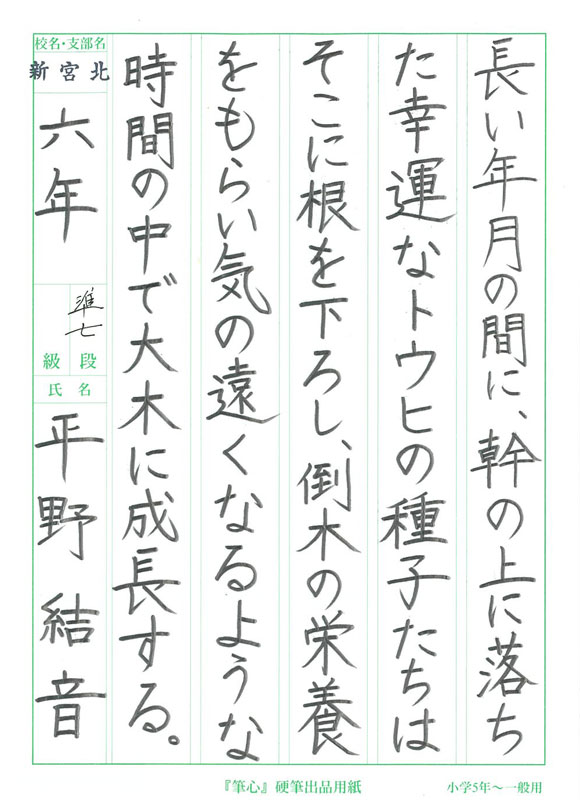 長い年月の間に、幹の上に落ち
た幸運なトウヒの種子たちは
そこに根を下ろし、倒木の栄養
をもらい気の遠くなるような
時間の中で大木に成長する。
校名・支部名
新宮北
六年
準七
級段
氏名
平野結音
『筆心』硬筆出品用紙
小学5年〜一般用